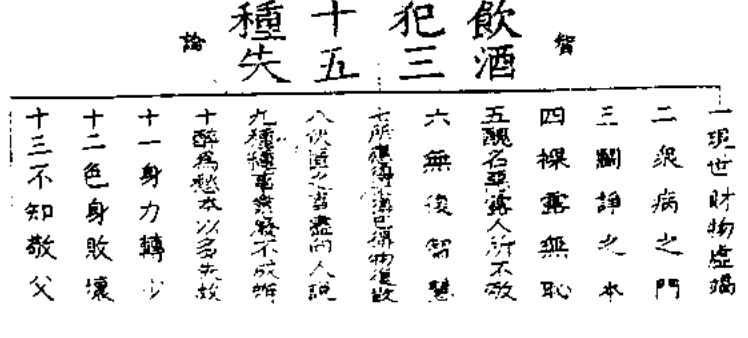 智論
飲酒犯三十五種失
一現世財物虛竭
二眾病之門
三鬪諍之本
四裸露無恥
五醜名惡露人所不敬
六無復智慧
七所應得不得已得物復散
八伏匿之事盡向人說
九種種事業廢不成辦
十醉為愁本以多失故
十一身力轉少
十二色身敗壞
十三不知敬父